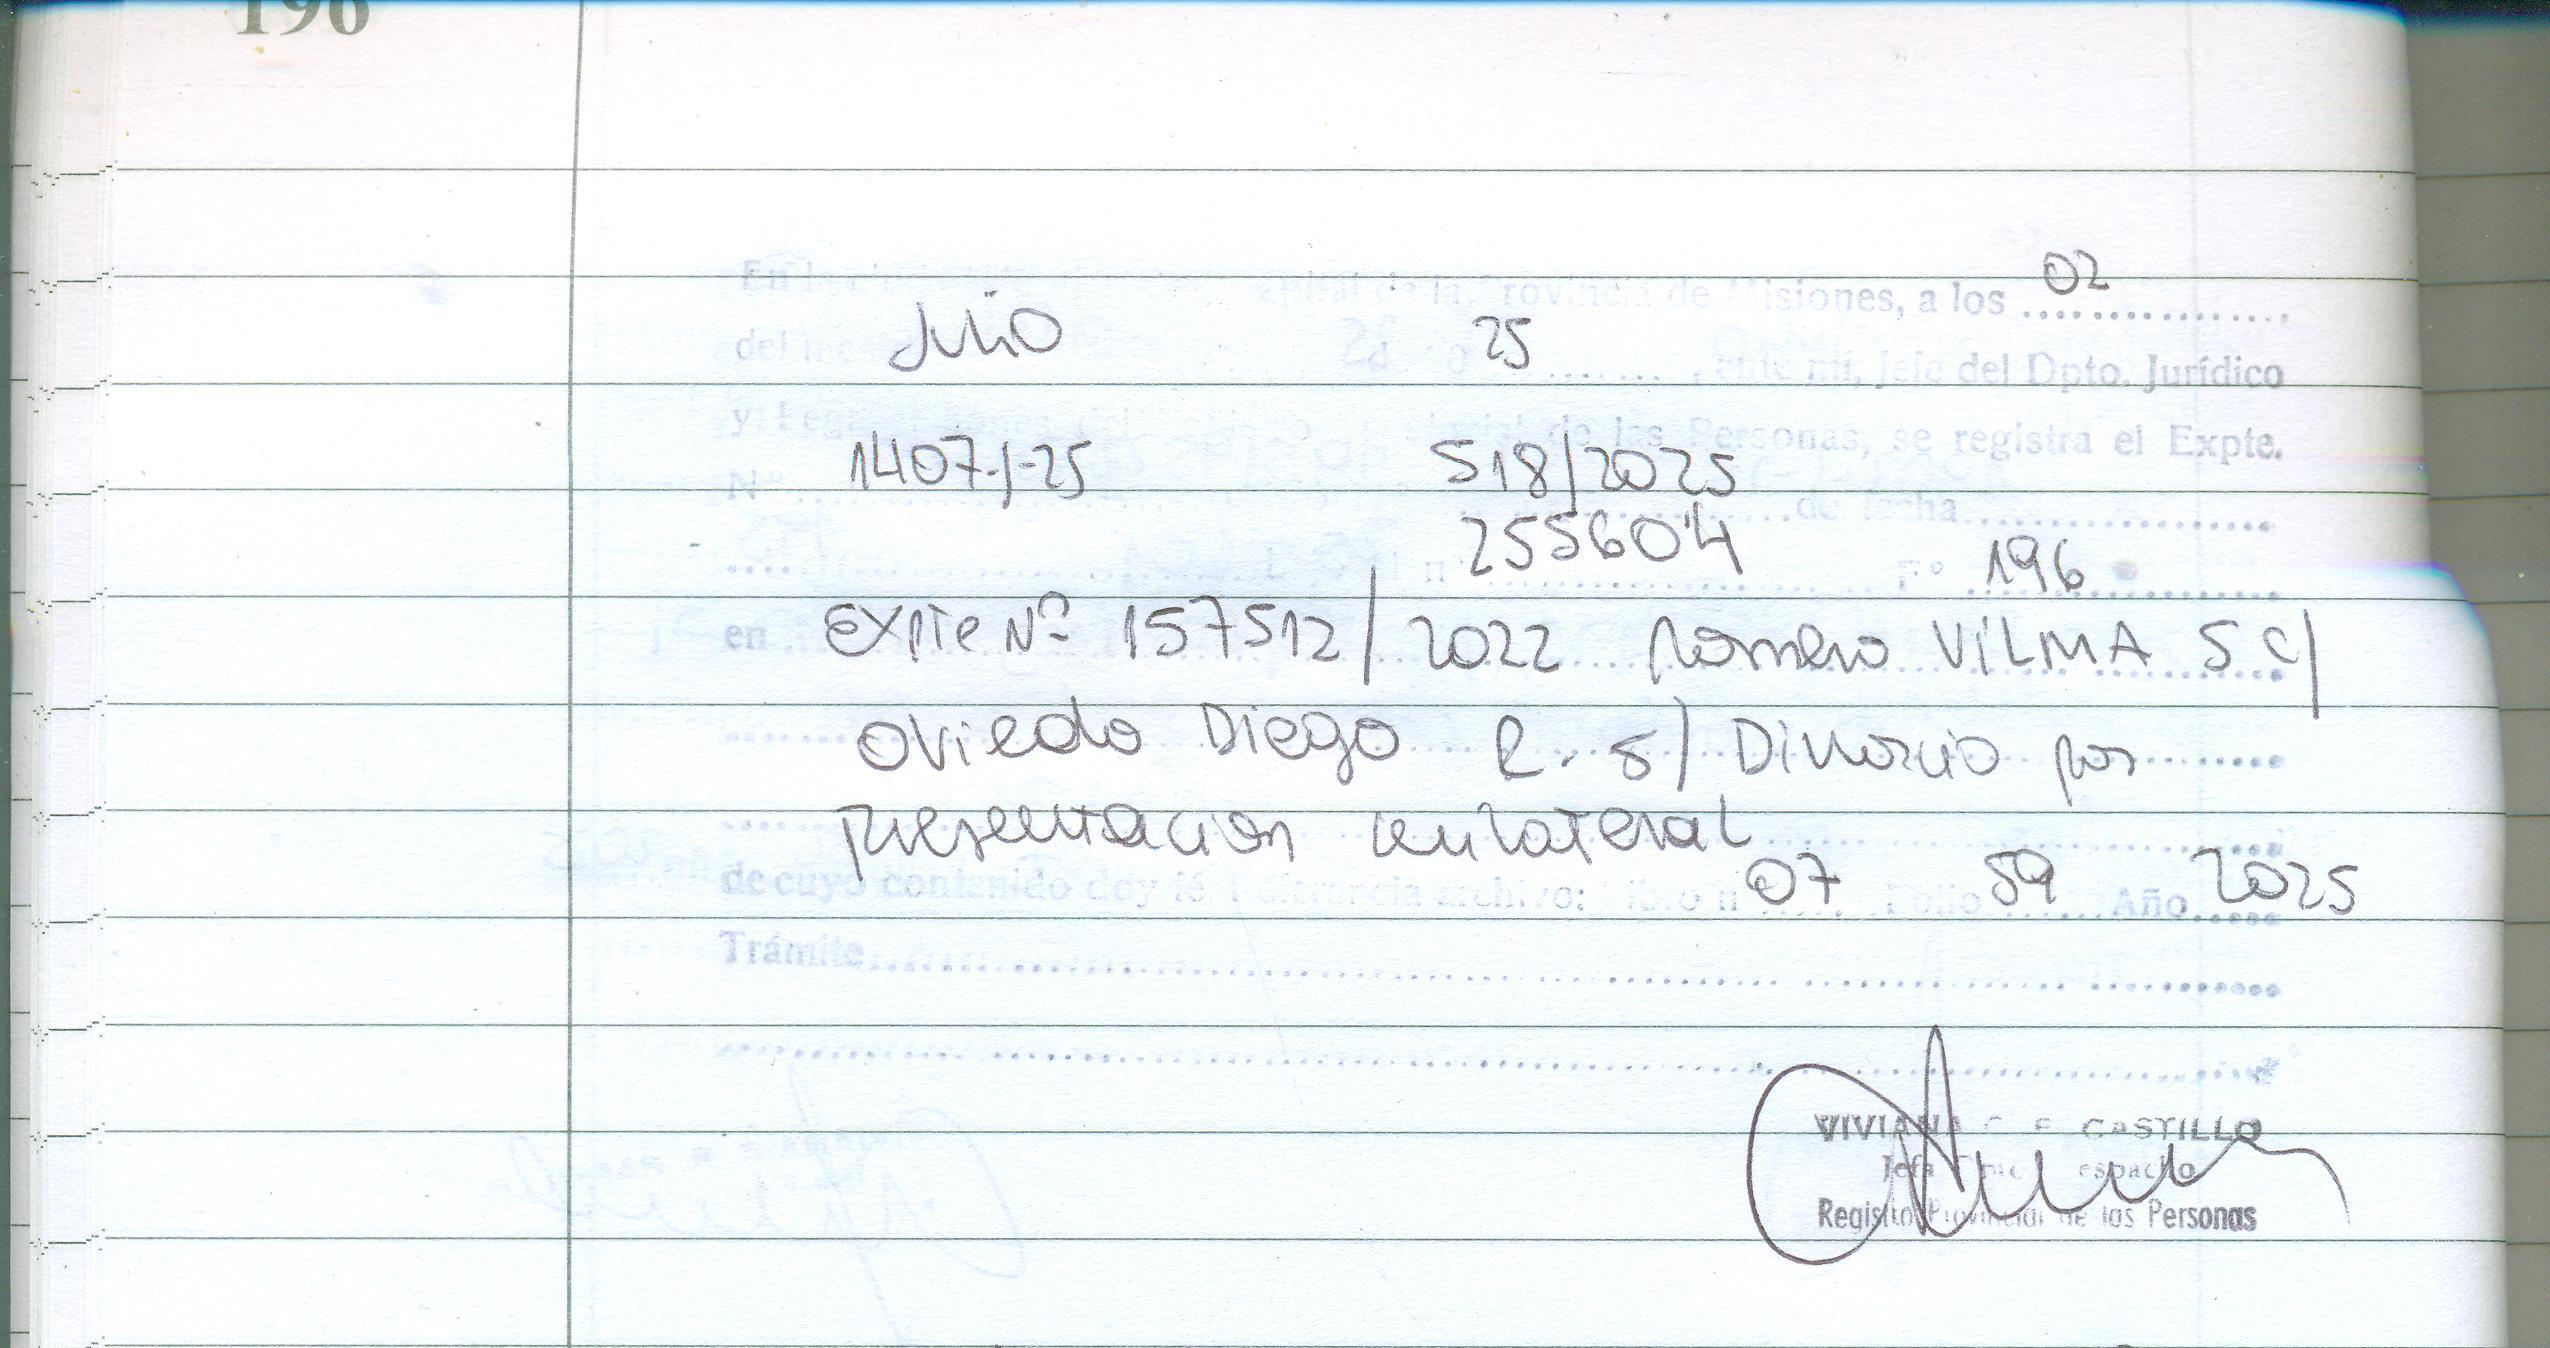 196
En la ciudad apital de la Provincia de Misiones, a los 02
del mes Julio 25 , ante mí, Jefe del Dpto. Jurídico
y de las Personas, se registra el Expte.
Nº 1407-J-25 518/2025 de fecha
255604 Fº 196
en Expte Nº 157512/2022 Romero VILMA S C/
Oviedo Diego R. S/ Divorcio por
presentacion unilateral
de cuyo contenido doy fé. archivo: Libro n 07 Folio 59 Año 2025
Trámite
VIVIANA CASTILLO
Jefa espacho
Registro Provincial de las Personas